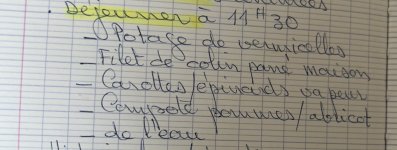 . Dejeuner à 11H30
- Potage de vermicelles
- Filet de colin pané maison
- Carottes/épinards vapeur
- Compote pommes/abricot
- de l'eau